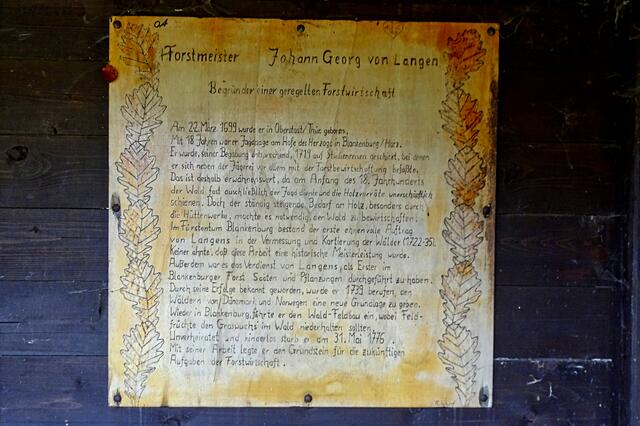 04
Forstmeister Johann Georg von Langen
Begründer einer geregelten Forstwirtschaft
Am 22. März 1699 wurde er in Oberstadt/Thür. geboren.
Mit 18 Jahren war er Jagdpage am Hofe des Herzogs in Blankenburg/Harz.
Er wurde, seiner Begabung entsprechend, 1719 auf Studienreisen geschickt, bei denen
er sich neben der Jägerei vor allem mit der Forstbewirtschaftung befaßte.
Das ist deshalb erwähnenswert, da am Anfang des 18. Jahrhunderts
der Wald fast auschließlich der Jagd diente und die Holzvorräte unerschöpflich
schienen. Doch der ständig steigende Bedarf an Holz, besonders durch
die Hüttenwerke, machte es notwendig, den Wald zu bewirtschaften.
Im Fürstentum Blankenburg bestand der erste ehrenvolle Auftrag
von Langens in der Vermessung und Kartierung der Wälder (1722-35).
Keiner ahnte, daß diese Arbeit eine historische Meisterleistung wurde.
Außerdem war es das Verdienst von Langens, als Erster im
Blankenburger Forst Saaten und Pflanzungen durchgeführt zu haben.
Durch seine Erfolge bekannt geworden, wurde er 1739 berufen, den
Wäldern von Dänemark und Norwegen eine neue Grundlage zu geben.
Wieder in Blankenburg, führte er den Wald-Feldbau ein, wobei Feld-
früchte den Graswuchs im Wald niederhalten sollten.
Unverheiratet und kinderlos starb er am 31. Mai 1776.
Mit seiner Arbeit legte er den Grundstein für die zukünftigen
Aufgaben der Forstwirtschaft.